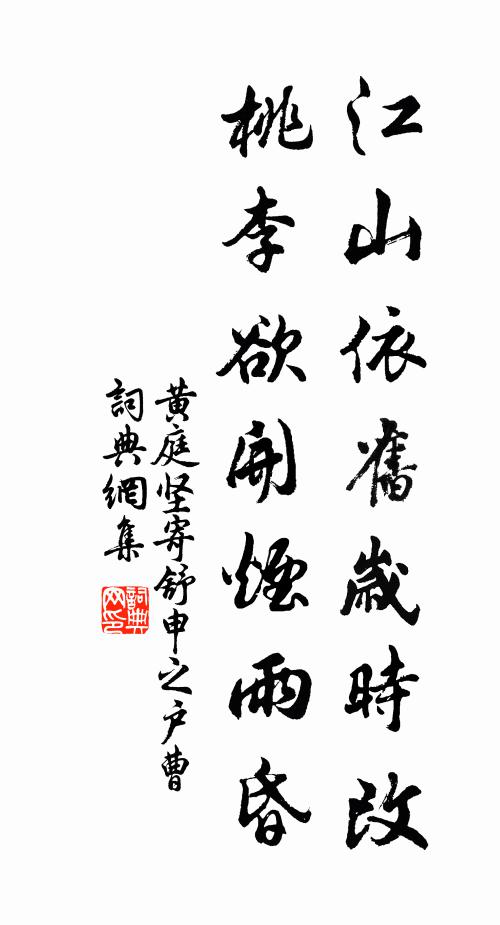 江山依舊歲時改
桃李欲開煙雨昏
黄庭坚寄舒申之户曹
詞典網集
詞典网印